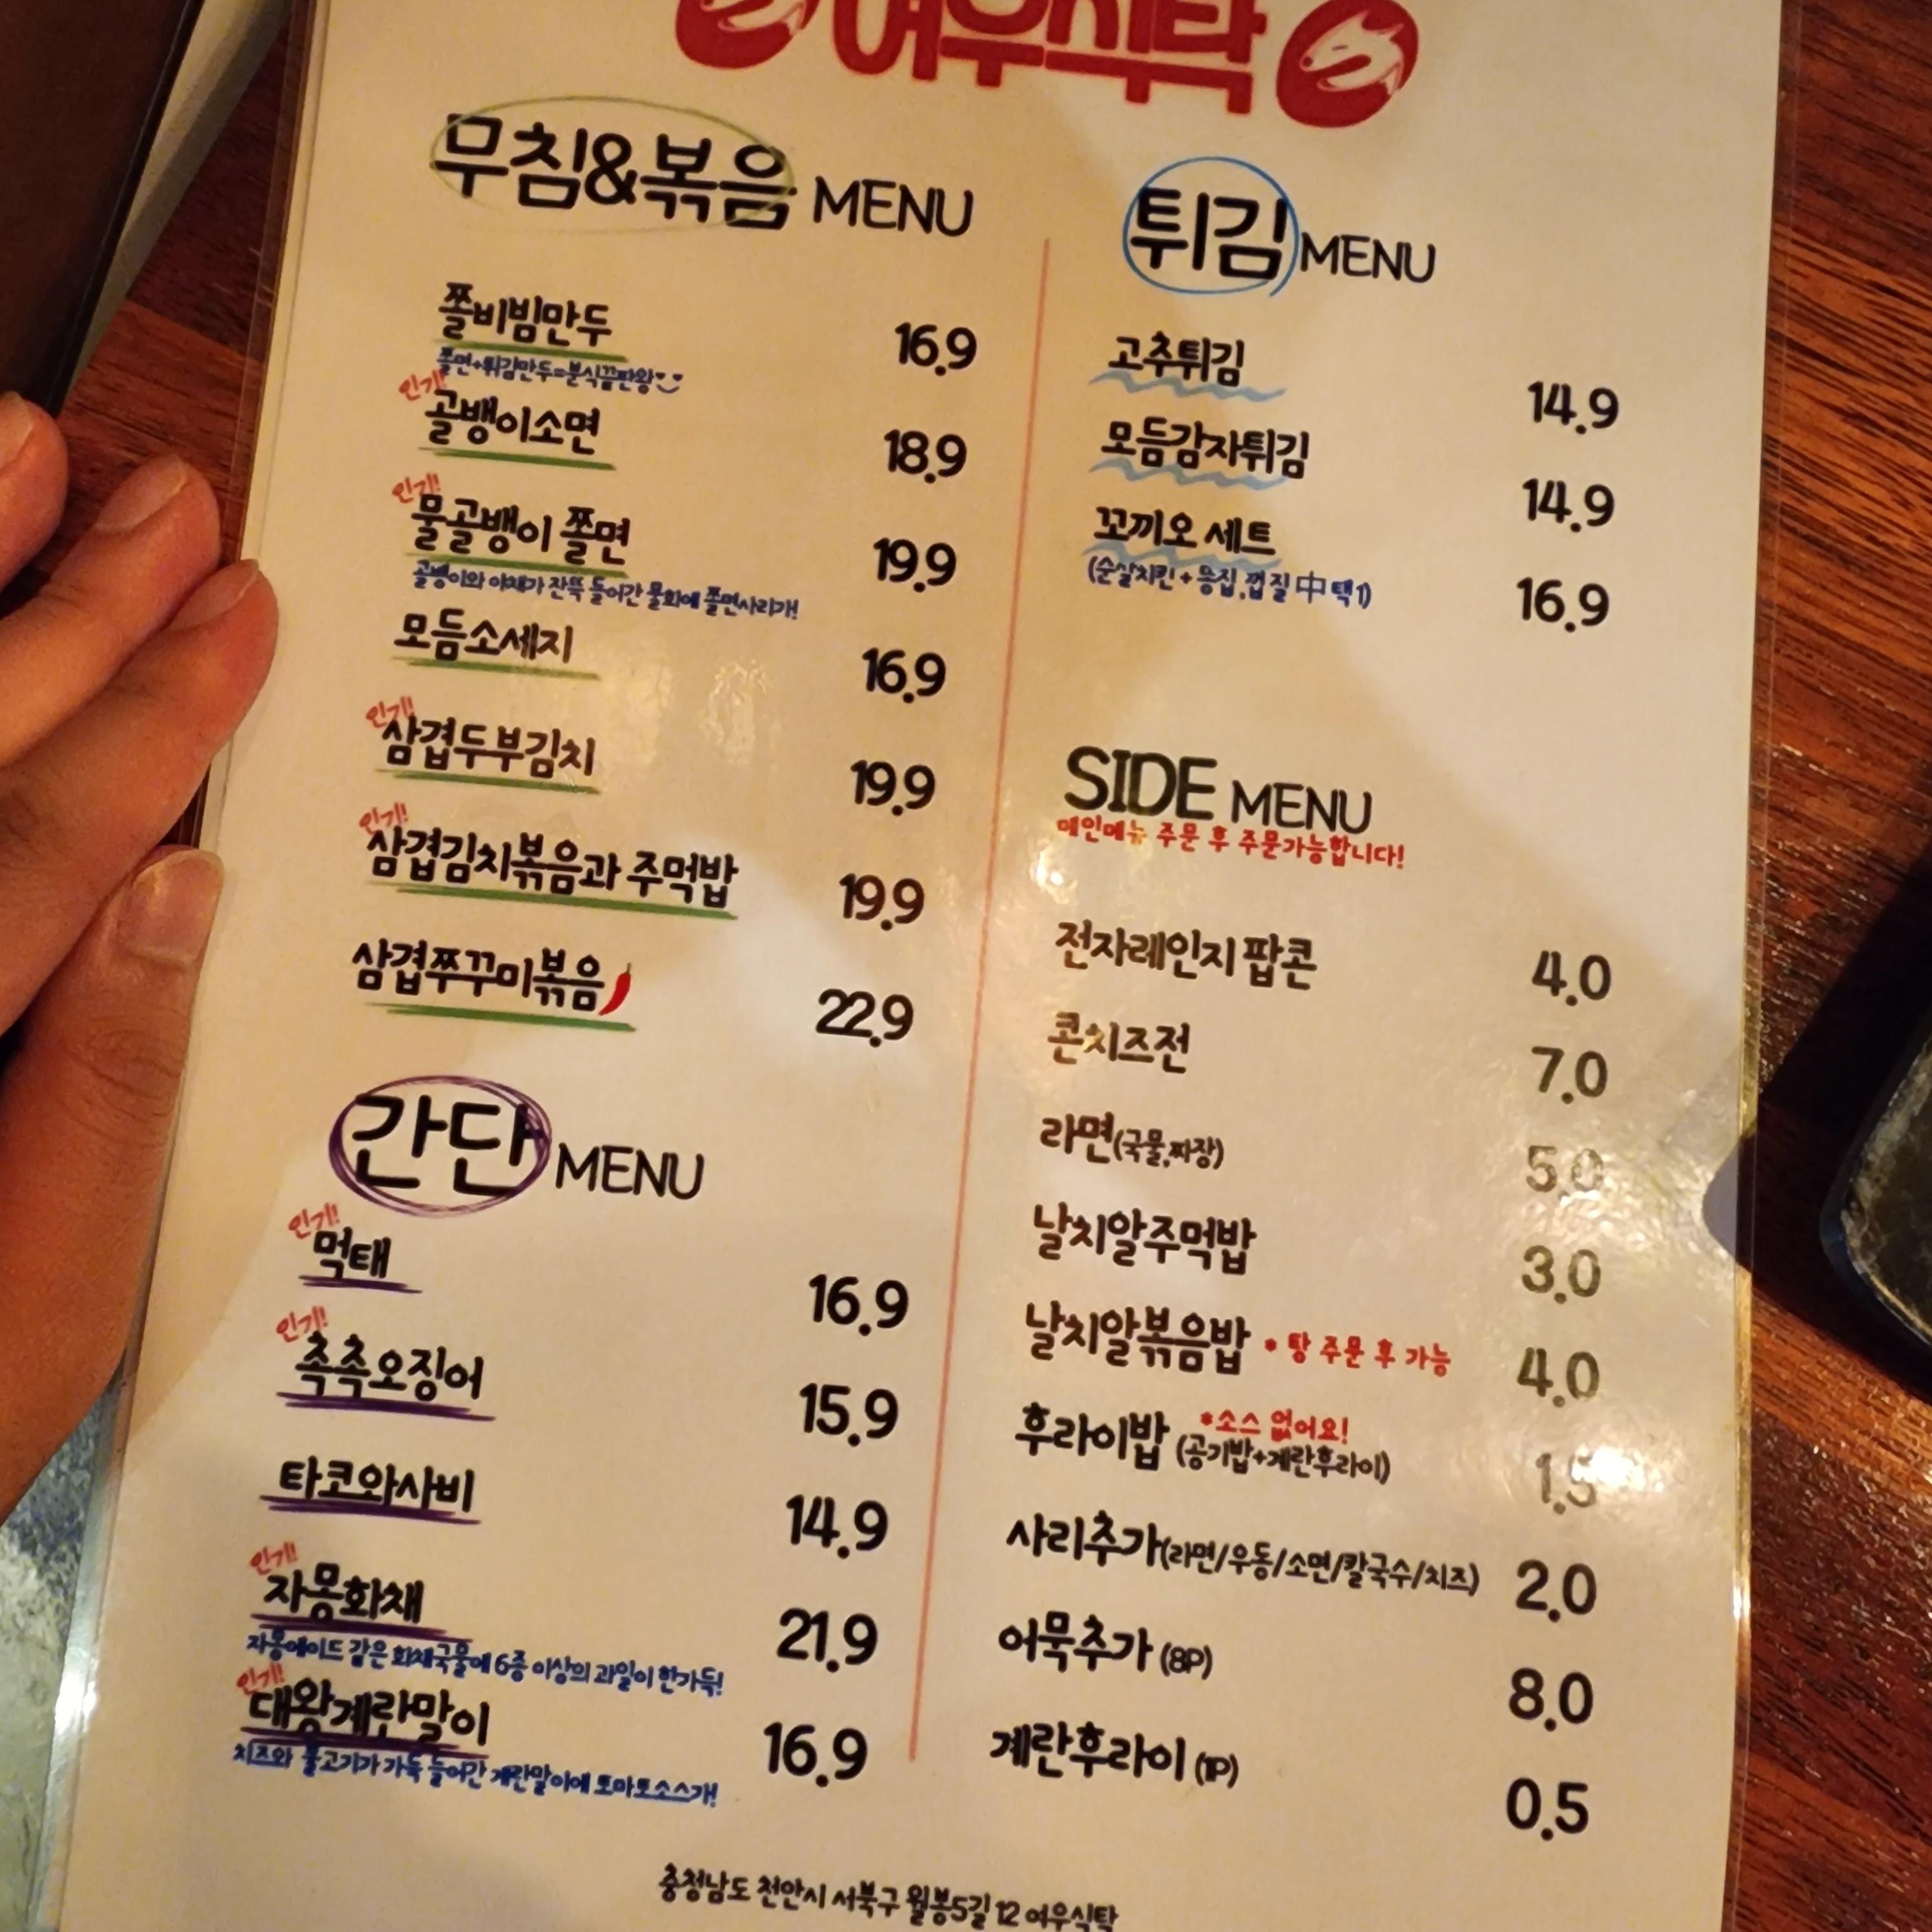 여우식탁
무침&볶음 MENU
쫄비빔만두 16.9
쫄면+튀김만두=분식끝판왕
인기!
골뱅이소면 18.9
인기!
물골뱅이 쫄면 19.9
골뱅이와 야채가 잔뜩 들어간 물회에 쫄면사리가!
모듬소세지 16.9
인기!
삼겹두부김치 19.9
인기!
삼겹김치볶음과 주먹밥 19.9
삼겹쭈꾸미볶음 22.9
간단 MENU
인기!
먹태 16.9
인기!
촉촉오징어 15.9
타코와사비 14.9
인기!
자몽화채 21.9
자몽에이드 같은 화채국물에 6종 이상의 과일이 한가득!
인기!
대왕계란말이 16.9
치즈와 불고기가 가득 들어간 계란말이에 토마토소스가!
튀김 MENU
고추튀김 14.9
모듬감자튀김 14.9
꼬끼오 세트 16.9
(순살치킨 + 똥집,껍질 中 택1)
SIDE MENU
메인메뉴 주문 후 주문가능합니다!
전자레인지 팝콘 4.0
콘치즈전 7.0
라면(국물,짜장) 5.0
날치알주먹밥 3.0
날치알볶음밥 * 탕 주문 후 가능 4.0
*소스 없어요!
후라이밥 (공기밥+계란후라이) 1.5
사리추가(라면/우동/소면/칼국수/치즈) 2.0
어묵추가 (8P) 8.0
계란후라이 (1P) 0.5
충청남도 천안시 서북구 월봉5길 12 여우식탁